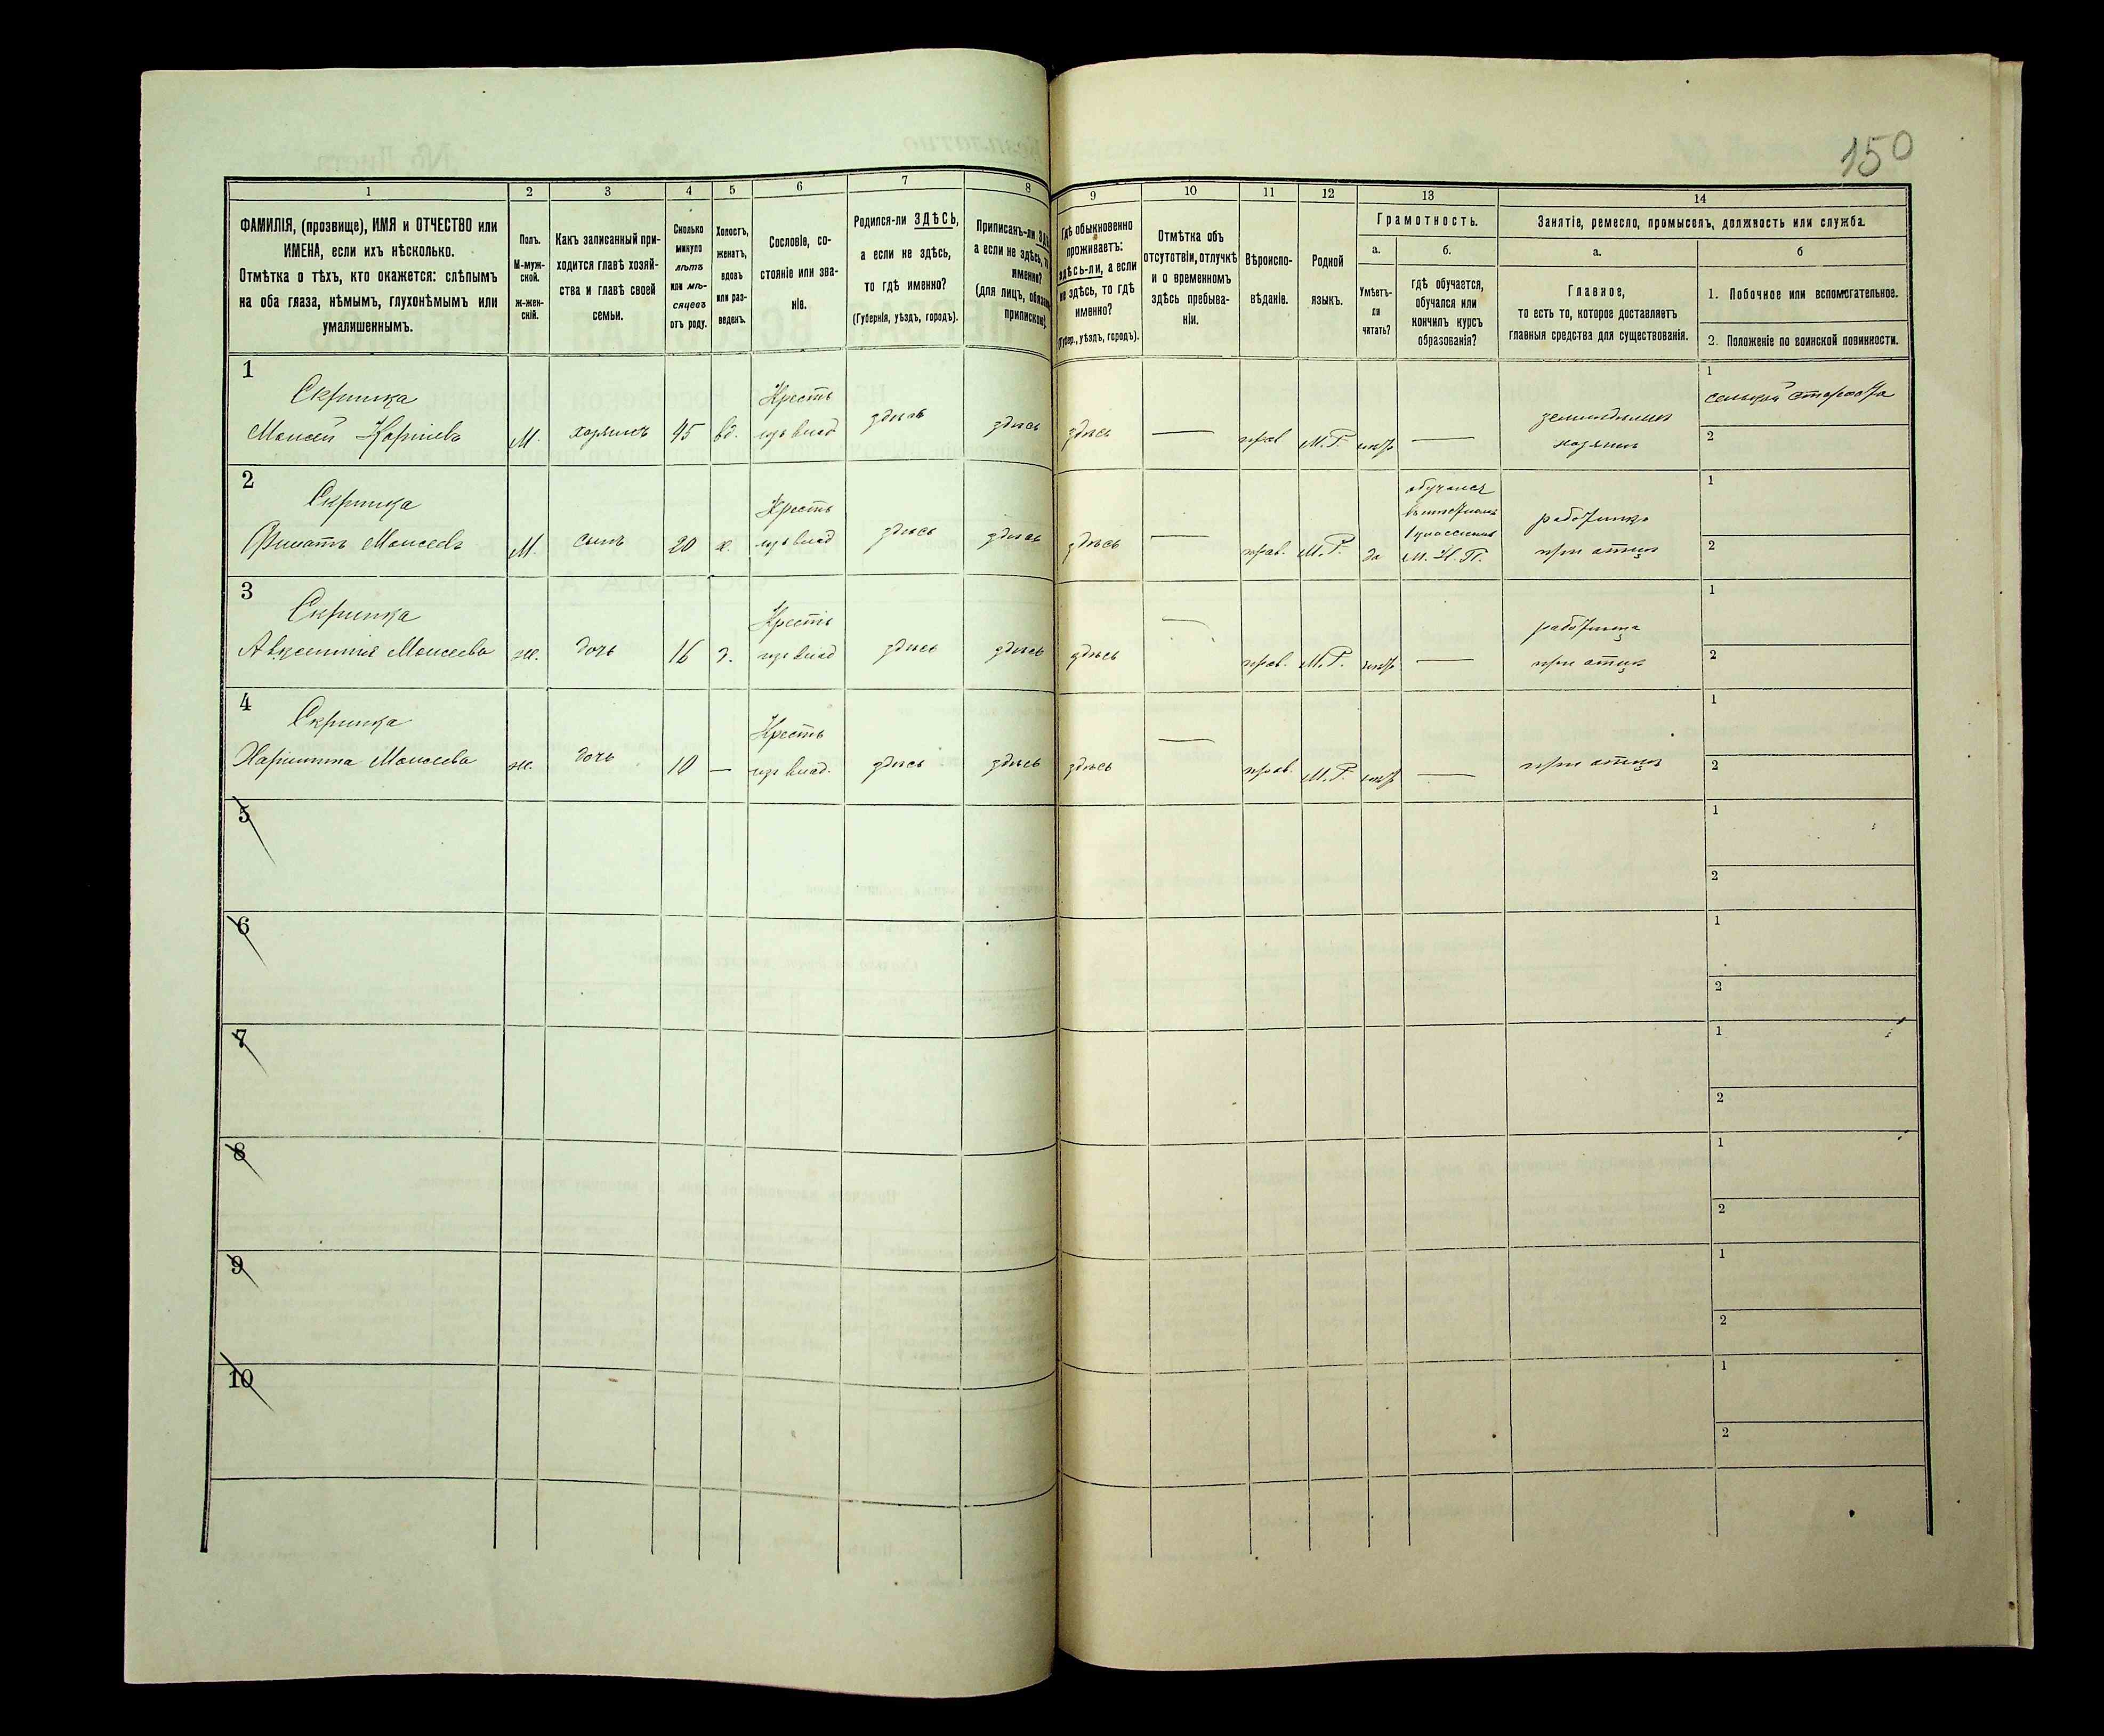 150
1 2 3 4 5 6 7 8 9 10 11 12 13 14
ФАМИЛІЯ, (прозвище), ИМЯ и ОТЧЕСТВО или
ИМЕНА, если ихъ нѣсколько.
Отмѣтка о тѣхъ, кто окажется: слѣпымъ
на оба глаза, нѣмымъ, глухонѣмымъ или
умалишеннымъ.
Полъ.
М-муж-
ской.
ж-жен-
скій.
Какъ записанный при-
ходится главѣ хозяй-
ства и главѣ своей
семьи.
Сколько
минуло
лѣтъ
или мѣ-
сяцевъ
отъ роду.
Холостъ,
женатъ,
вдовъ
или раз-
веденъ.
Сословіе, со-
стояніе или зва-
ніе.
Родился-ли ЗДѢСЬ,
а если не здѣсь,
то гдѣ именно?
(Губернія, уѣздъ, городъ).
Приписанъ-ли
а если не здѣсь,
именно?
(для лицъ,
припискою)
Гдѣ обыкновенно
проживаетъ:
здѣсь-ли, а если
не здѣсь, то гдѣ
именно?
(Губер., уѣздъ, городъ).
Отмѣтка объ
отсутствіи, отлучкѣ
и о временномъ
здѣсь пребыва-
ніи.
Вѣроиспо-
вѣданіе.
Родной
языкъ.
Грамотность.
а.
Умѣетъ-
ли
читать?
б.
гдѣ обучается,
обучался или
кончилъ курсъ
образованія?
Занятіе, ремесло, промыселъ, должность или служба.
а.
Главное,
то есть то, которое доставляетъ
главныя средства для существованія.
б
1. Побочное или вспомогательное.
2. Положеніе по воинской повинности.
1
Скрипка
Моисей
М. хозяинъ 45 вд.
Кресть
изъ влад
здѣсь здѣсь здѣсь — прав М.Р. нѣтъ —
хозяинъ
1
сельскій староста
2
2
Скрипка
Филатъ Моисеевъ
М. сынъ 20 х.
Кресть
изъ влад
здѣсь здѣсь здѣсь — прав. М.Р. да
обучался
М. Н. П.
работникъ
при отцѣ
1
2
3
Скрипка
Моисеева
ж. дочь 16 д.
Кресть
изъ влад
здѣсь здѣсь здѣсь — прав. М.Р. нѣтъ —
работница
при отцѣ
1
2
4
Скрипка
Харитина Моисеева
ж. дочь 10 —
Кресть
изъ влад.
здѣсь здѣсь здѣсь — прав. М.Р. нѣтъ —
при отцѣ
1
2
5
1
2
6
1
2
7
1
2
8
1
2
9
1
2
10
1
2